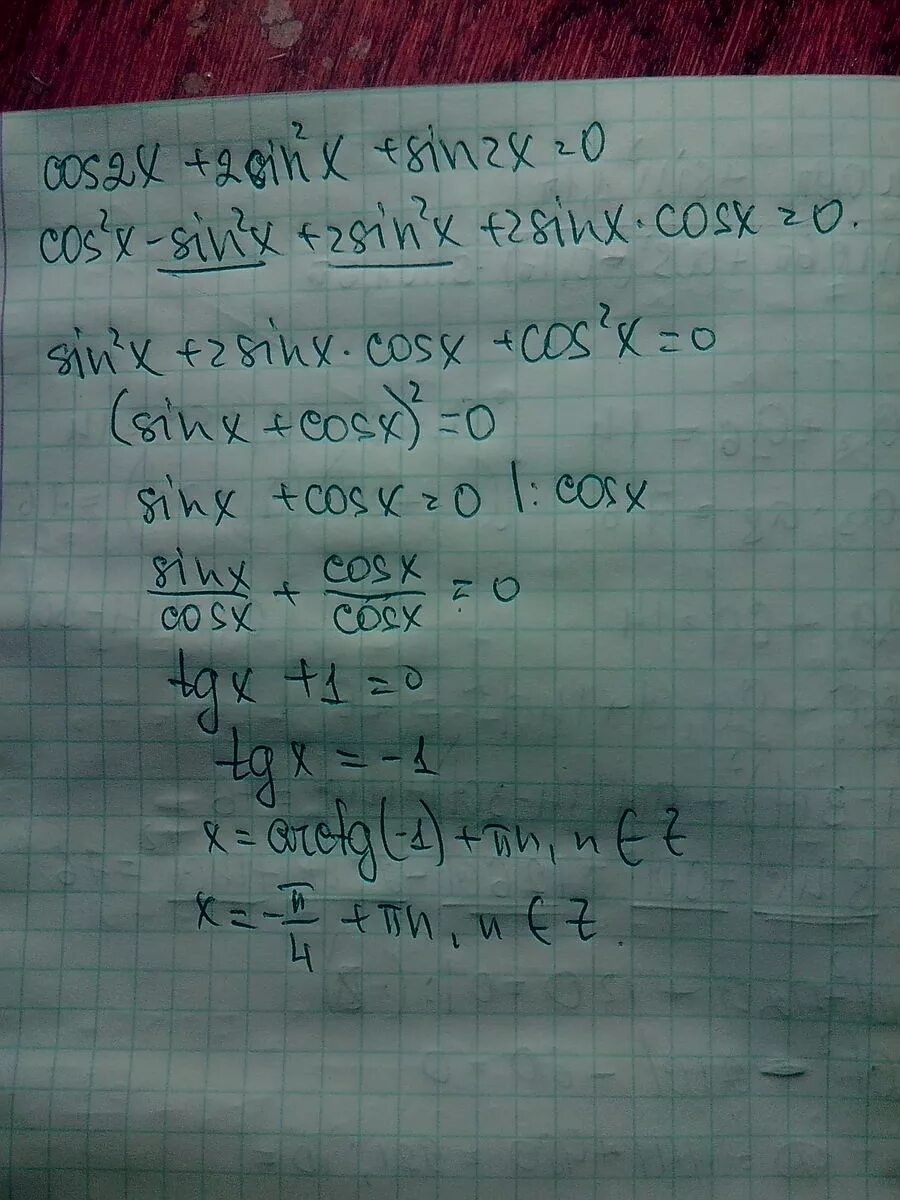 cos2x + 2sin²x + sin2x = 0
cos²x - sin²x + 2sin²x + 2sinx · cosx = 0.
sin²x + 2sinx · cosx + cos²x = 0
(sinx + cosx)² = 0
sinx + cosx = 0 |: cosx
sinx/cosx + cosx/cosx = 0
tgx + 1 = 0
tgx = -1
x = arctg(-1) + πn, n ∈ Z
x = -π/4 + πn, n ∈ Z.